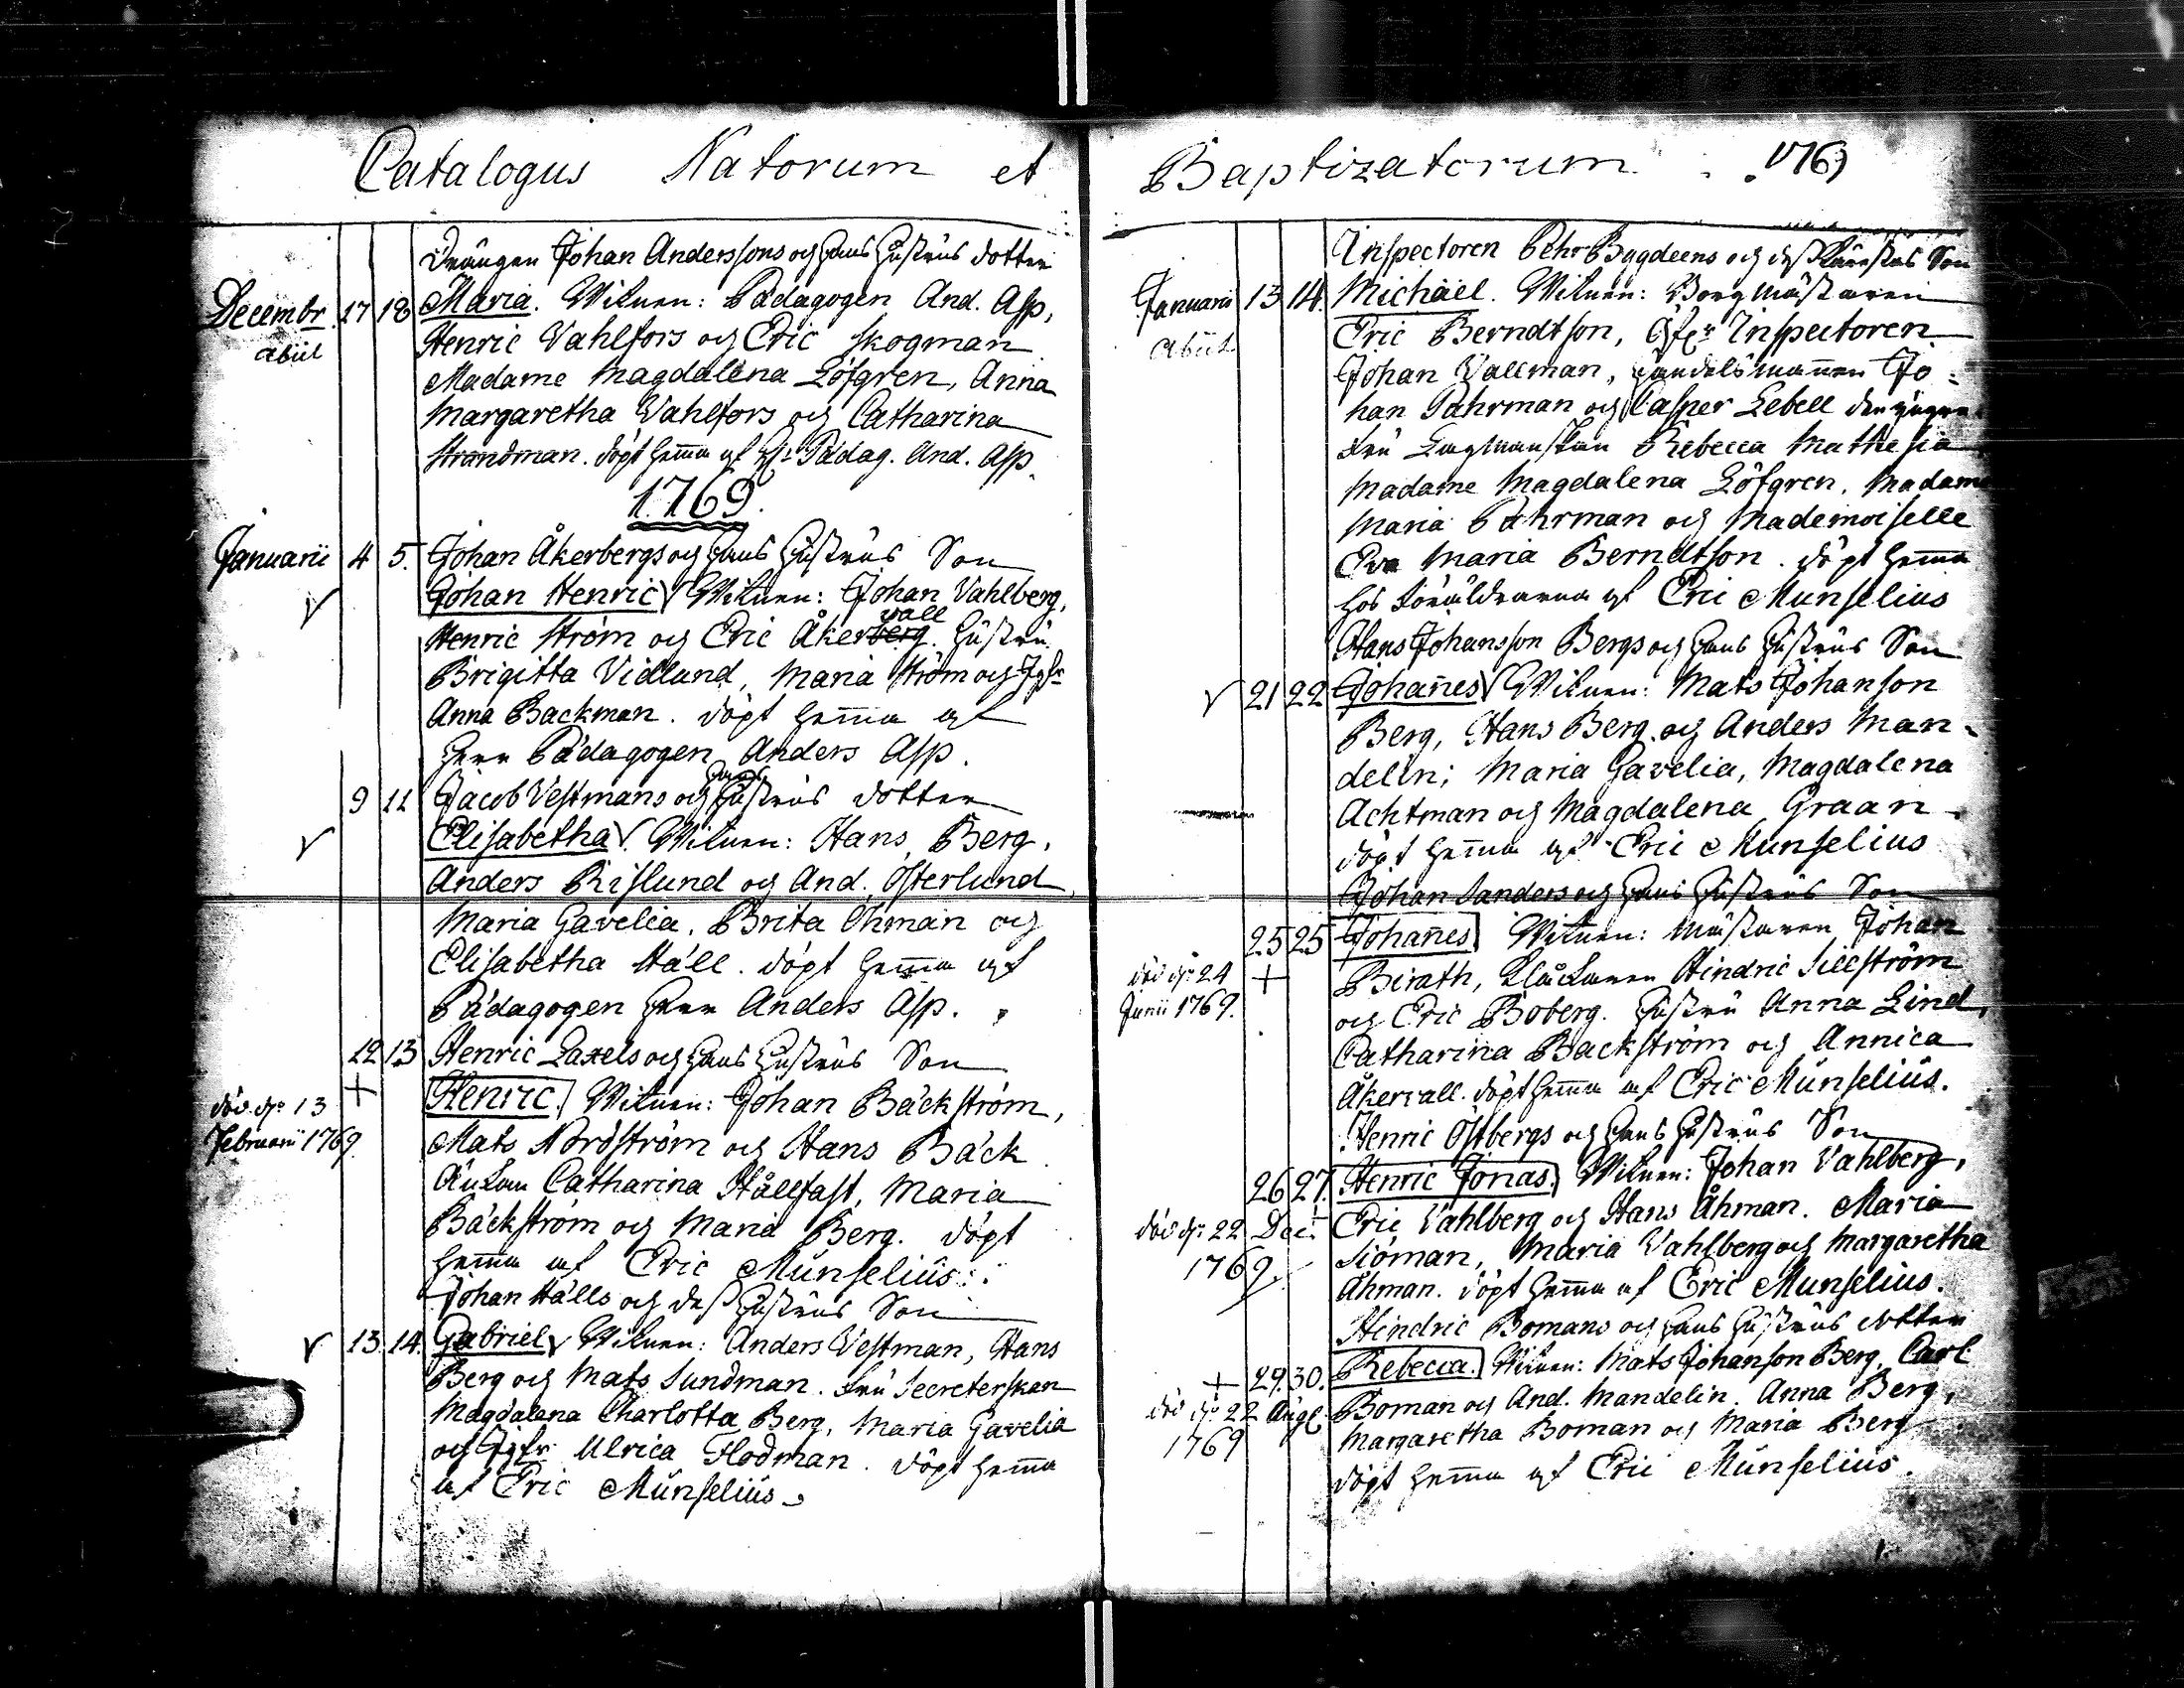 Catalogus Natorum et
Drängen Johan Anderssons och hans hustrus dotter
Decembr. 17 18 Maria. Witnen: Pädagogen And. Asp,
abiit Henric Vahlfors och Eric Skogman
Madame Magdalena Löfgren, Anna
Margaretha Vahlfors och Catharina
Strandman. döpt hema af Hr Pädag. And. Asp.
1769.
Januarii 4 5. Johan Åkerbergs och hans hustrus Son
Johan Henric Witnen: Johan Vahlberg,
vall
Henric Ström och Eric Åkerberg. hustru
Brigitta Vidlund, Maria Ström och Jgfr
Anna Backman. döpt hema af
Herr Pädagogen Anders Asp.
hans
9 11 Jacob Vestmans och hustrus dotter
Elisabetha. Witnen: Hans Berg,
Anders Rislund och And. Österlund,
Maria Gavelia, Brita Öhman och
Elisabetha Häll. döpt hema af
Pädagogen Herr Anders Asp.
12 13 Henric Laxels och hans hustrus Son
+ Henric. Witnen: Johan Bäckström,
död d. 13
Februarii 1769. Mats Nordström och Hans Bäck.
Änkan Catharina Hållfast, Maria
Bäckström och Maria Berg. döpt
hema af Eric Munselius.
Johan Hälls och dess hustrus Son
13. 14. Gabriel Witnen: Anders Vestman, Hans
Berg och Mats Sundman. Fru Secreterskan
Magdalena Charlotta Berg, Maria Gavelia
och Jgfr Ulrica Flodman. döpt hema
af Eric Munselius.
Baptizatorum. 1769
Inspectoren Pehr Bygdeens och dess Kärestas Son
Januarii 13 14. Michäel. Witnen: Borgmästaren
abiit Eric Berndtson, Inspectoren
Johan Vallman, handelsmannen Jo-
han Pahrman och Casper Lebell den yngre
Fru Lagmanskan Rebecca Mathesia
Madame Magdalena Löfgren, Madame
Maria Pahrman och Mademoiselle
Eva Maria Berndtson. döpt hema
hos Föräldrarna af Eric Munselius
Hans Johansson Bergs och hans hustrus Son
21 22 Johannes Witnen: Mats Johanson
Berg, Hans Berg och Anders Man-
delin; Maria Gavelia, Magdalena
Achtman och Magdalena Graan
döpt hema af Eric Munselius
Johan Sanders och hans hustrus Son
25 25 Johannes Witnen: Mästaren Johan
död d. 24 + Birath, Klåckaren Hindric Sillström
Junii 1769. och Eric Boberg. hustru Anna Lind,
Catharina Backström och Annica
Åkervall. döpt hema af Eric Munselius.
Henric Östbergs och hans hustrus Son
26 27. Henric Jonas. Witnen: Johan Vahlberg,
död d. 22 Dec. Eric Vahlberg och Hans Åhman. Maria
1769 Siöman, Maria Vahlberg och Margaretha
Åhman. döpt hema af Eric Munselius.
Hindric Bomans och hans hustrus dotter
+ 29. 30. Rebecca. Witnen: Mats Johanson Berg, Carl
död d. 22 Aug. Boman och And. Mandelin. Anna Berg,
1769 Margaretha Boman och Maria Berg
döpt hema af Eric Munselius.